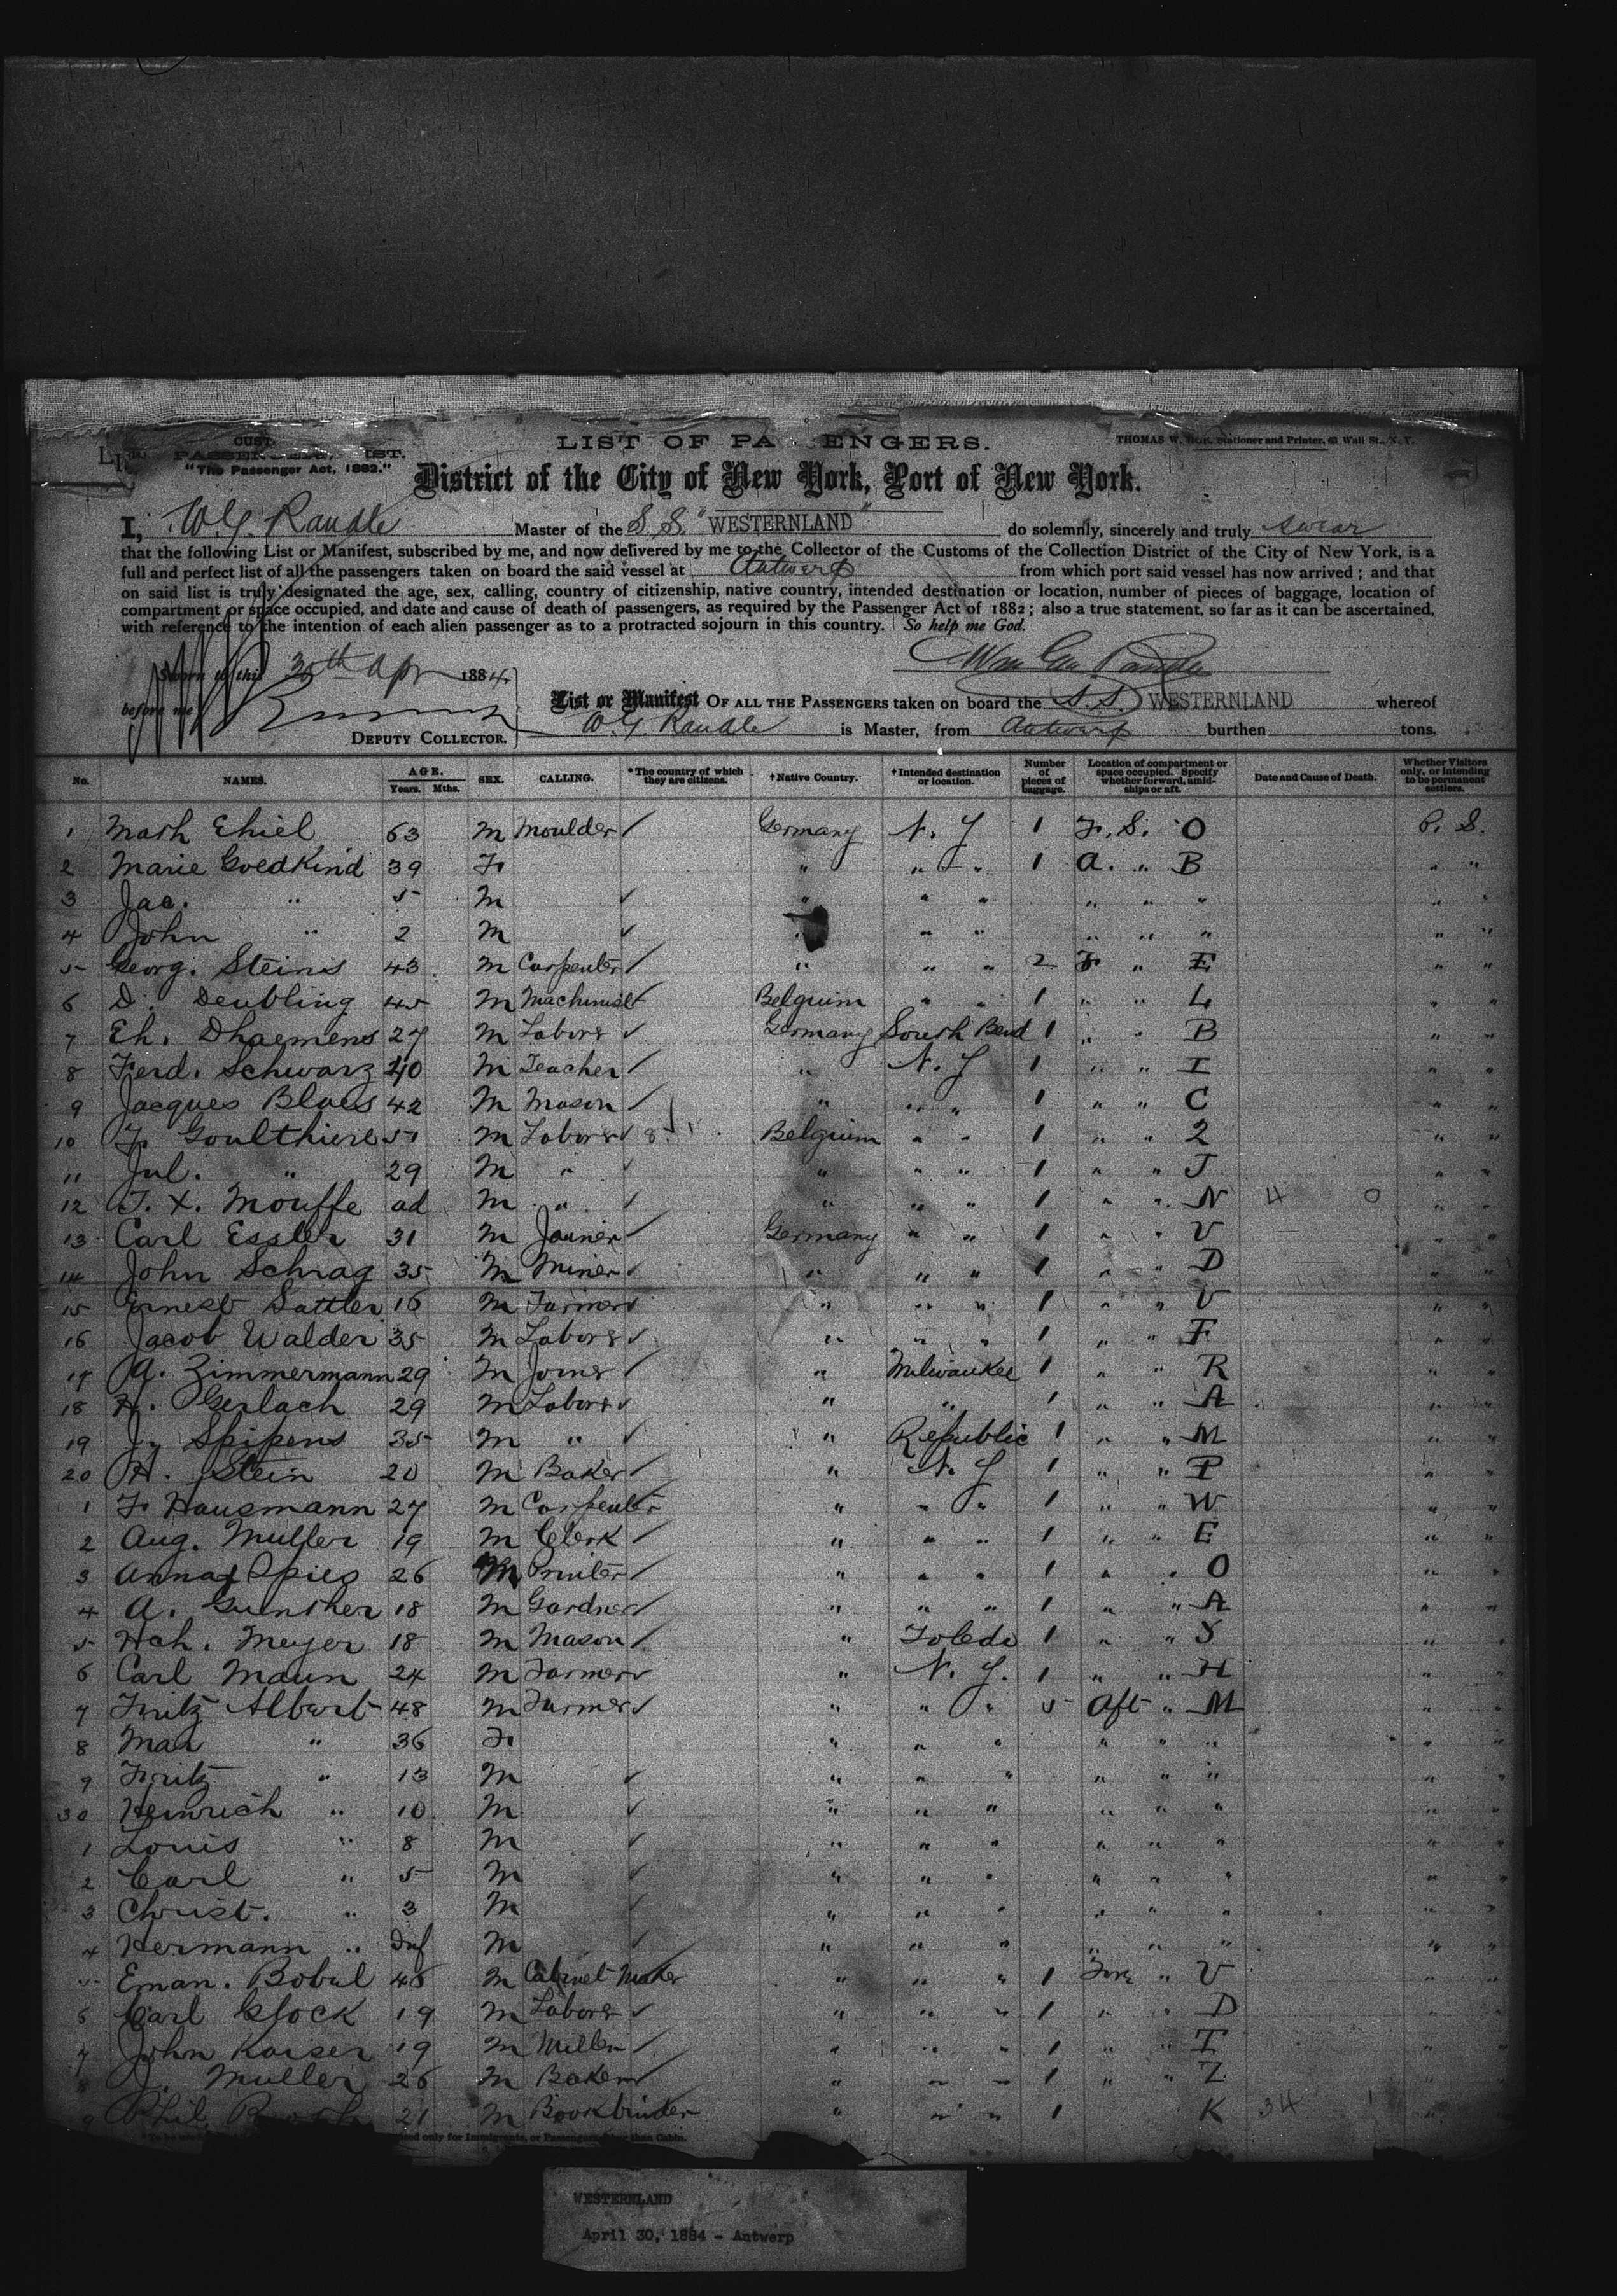 LIST OF PA ENGERS.
THOMAS W. Stationer and Printer, 63 Wall St., N. Y.
CUST
PASSEN IST.
"The Passenger Act, 1882."
District of the City of New York, Port of New York.
I, W. G. Randle Master of the S. S. "WESTERNLAND" do solemnly, sincerely and truly swear
that the following List or Manifest, subscribed by me, and now delivered by me to the Collector of the Customs of the Collection District of the City of New York, is a
full and perfect list of all the passengers taken on board the said vessel at Antwerp from which port said vessel has now arrived ; and that
on said list is truly designated the age, sex, calling, country of citizenship, native country, intended destination or location, number of pieces of baggage, location of
compartment or space occupied, and date and cause of death of passengers, as required by the Passenger Act of 1882 ; also a true statement, so far as it can be ascertained,
with reference to the intention of each alien passenger as to a protracted sojourn in this country. So help me God.
Wm Geo Randle
Sworn to this 30th Apr 1884
before me
DEPUTY COLLECTOR.
List or Manifest OF ALL THE PASSENGERS taken on board the S. S. WESTERNLAND whereof
W. G. Randle is Master, from Antwerp burthen tons.
No. NAMES. AGE. Years. Mths. SEX. CALLING. *The country of which they are citizens. †Native Country. †Intended destination or location. Number of pieces of baggage. Location of compartment or space occupied. Specify whether forward, amidships or aft. Date and Cause of Death. Whether Visitors only, or intending to be permanent settlers.
1 Math Ehiel 63 M Moulder ✓ Germany N. Y 1 F. S. O P. S.
2 Marie Goedkind 39 F " " " 1 A. " B " "
3 Jac. " 5 M ✓ " " " " " " " "
4 John " 2 M ✓ " " " " " " " "
5 Georg. Steinis 43 M Carpenter ✓ " " " 2 F " E " "
6 D. Deubling 45 M Machinist ✓ Belgium " " 1 " " L " "
7 Eh. Dhaemens 27 M Labora ✓ Germany South Bend 1 " " B " "
8 Ferd. Schwarz 40 M Teacher ✓ " N. Y 1 " " I " "
9 Jacques Blaes 42 M Mason ✓ " " " 1 " " C " "
10 F. Goulthiere 51 M Labora ✓ 8 Belgium " " 1 " " 2 " "
11 Jul. " 29 M " ✓ " " " 1 " " J " "
12 F. X. Mouffe ad M " ✓ " " " 1 " " N 4 0 " "
13 Carl Essler 31 M Joiner ✓ Germany " " 1 " " V " "
14 John Schrag 35 M Miner ✓ " " " 1 " " D " "
15 Ernest Sattler 16 M Farmer ✓ " " " 1 " " U " "
16 Jacob Walder 35 M Labora ✓ " " " 1 " " F " "
17 A. Zimmermann 29 M Joiner ✓ " Milwaukee 1 " " R " "
18 H. Gerlach 29 M Labora ✓ " " 1 " " A " "
19 Jy Spipens 35 M " ✓ " Republic 1 " " M " "
20 H. Stein 20 M Baker ✓ " N. Y 1 " " P " "
1 F. Hausmann 27 M Carpenter " " " 1 " " W " "
2 Aug. Muller 19 M Clerk ✓ " " " 1 " " E " "
3 Anna Spies 26 M Printer ✓ " " " 1 " " O " "
4 A. Gunther 18 M Gardner ✓ " " " 1 " " A " "
5 Hch. Meyer 18 M Mason ✓ " Toledo 1 " " S " "
6 Carl Maun 24 M Farmer ✓ " N. Y. 1 " " H " "
7 Fritz Albert 48 M Farmer ✓ " " " 5 Aft " M " "
8 Mar " 36 F " " " " " " " "
9 Fritz " 13 M ✓ " " " " " " " "
30 Heinrich " 10 M ✓ " " " " " " " "
1 Louis " 8 M ✓ " " " " " " " "
2 Carl " 5 M ✓ " " " " " " " "
3 Christ. " 3 M ✓ " " " " " " " "
4 Hermann " Inf M ✓ " " " " " " " "
5 Eman. Bobul 48 M Cabinet Maker " " " 1 Fore " V " "
6 Carl Glock 19 M Labora ✓ " " " 1 " " D " "
7 John Kaiser 19 M Miller ✓ " " " 1 " " T " "
8 J. Muller 26 M Baker ✓ " " " 1 " " Z " "
9 Phil. 21 M Bookbinder " " " 1 K 34 "
only for Immigrants, or Passengers other than Cabin.
WESTERNLAND
April 30, 1884 - Antwerp